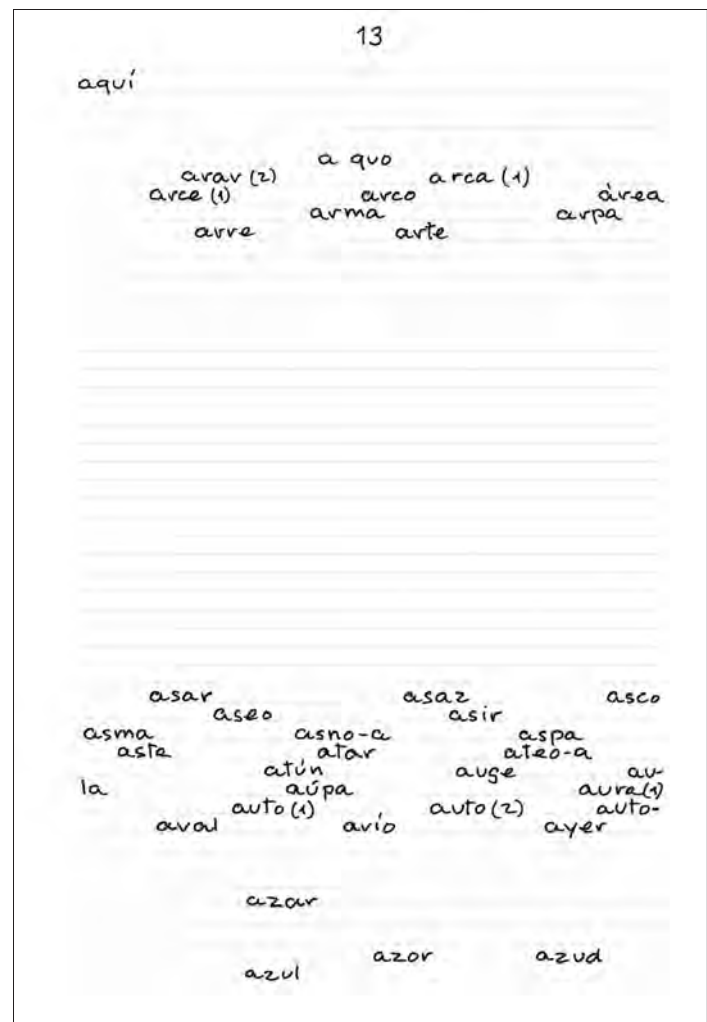 13
aquí
a quo
arar (2) arca (1)
arce (1) arco área
arma arpa
arre arte
asar asaz asco
aseo asir
asma asno-a aspa
aste atar ateo-a
atún auge au-
la aúpa aura (1)
auto (1) auto (2) auto-
aval avío ayer
azar
azor azud
azul